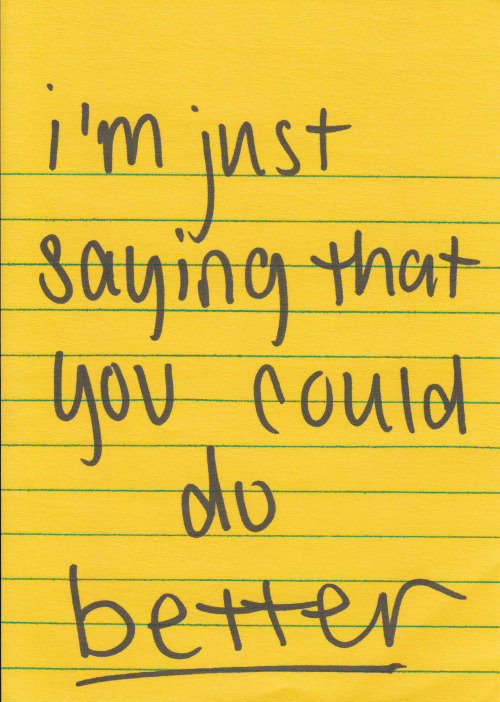 i'm just
saying that
you could
do
better